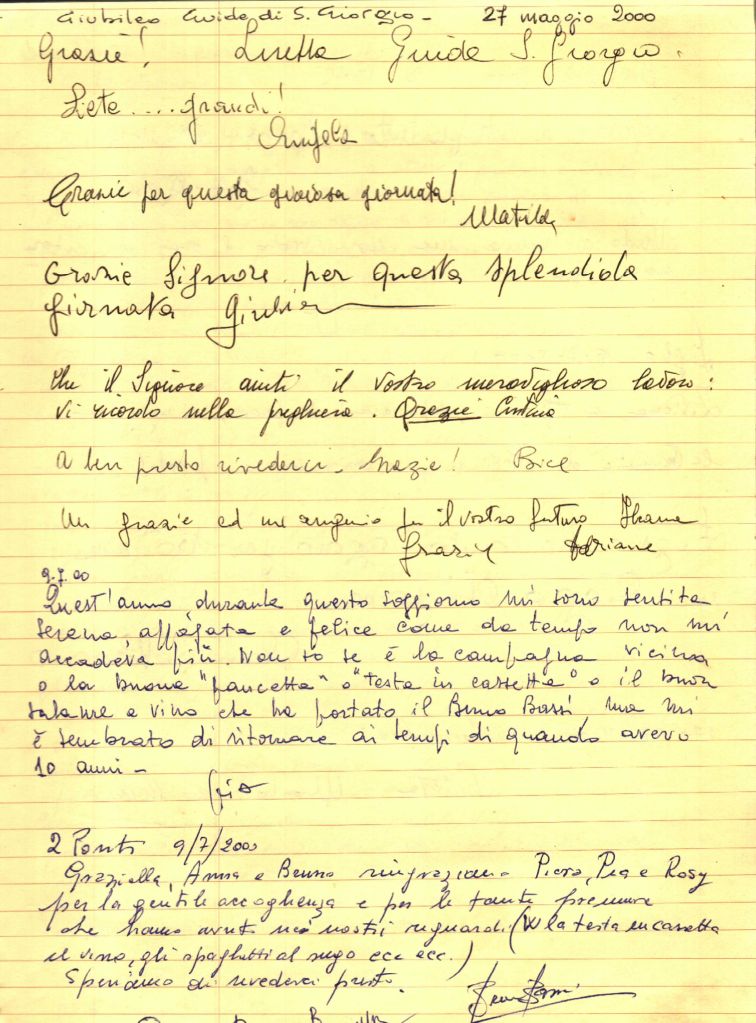 Giubileo Guide di S. Giorgio - 27 maggio 2000
Grazie! Lisetta Guida S. Giorgio.
Liete .... grandi!
Angela
Grazie per questa gioiosa giornata!
Matilde
Grazie Signore per questa splendida
giornata
Che il Signore aiuti il vostro meraviglioso lavoro:
vi ricordo nella preghiera. Grazie Cintia
A ben presto rivederci - Grazie! Bice
Un grazie ed un augurio per il vostro futuro
Grazie Adriana
9.7.00
Quest'anno, durante questo soggiorno mi sono sentita
serena, appagata e felice come da tempo non mi
accadeva più. Non so se è la campagna vicina
o la buona "pancetta" o "testa in cassetta" o il buon
salame e vino che ha portato il Bruno Bassi, ma mi
è sembrato di ritornare ai tempi di quando avevo
10 anni -
2 Ponti 9/7/2000
Graziella, Anna e Bruno ringraziano Piera, Pia e Rosy
per la gentile accoglienza e per le tante premure
che hanno avuto nei nostri riguardi (W la testa in cassetta
il vino, gli spaghetti al sugo ecc ecc.)
Speriamo di rivederci presto.
Bruno Bassi